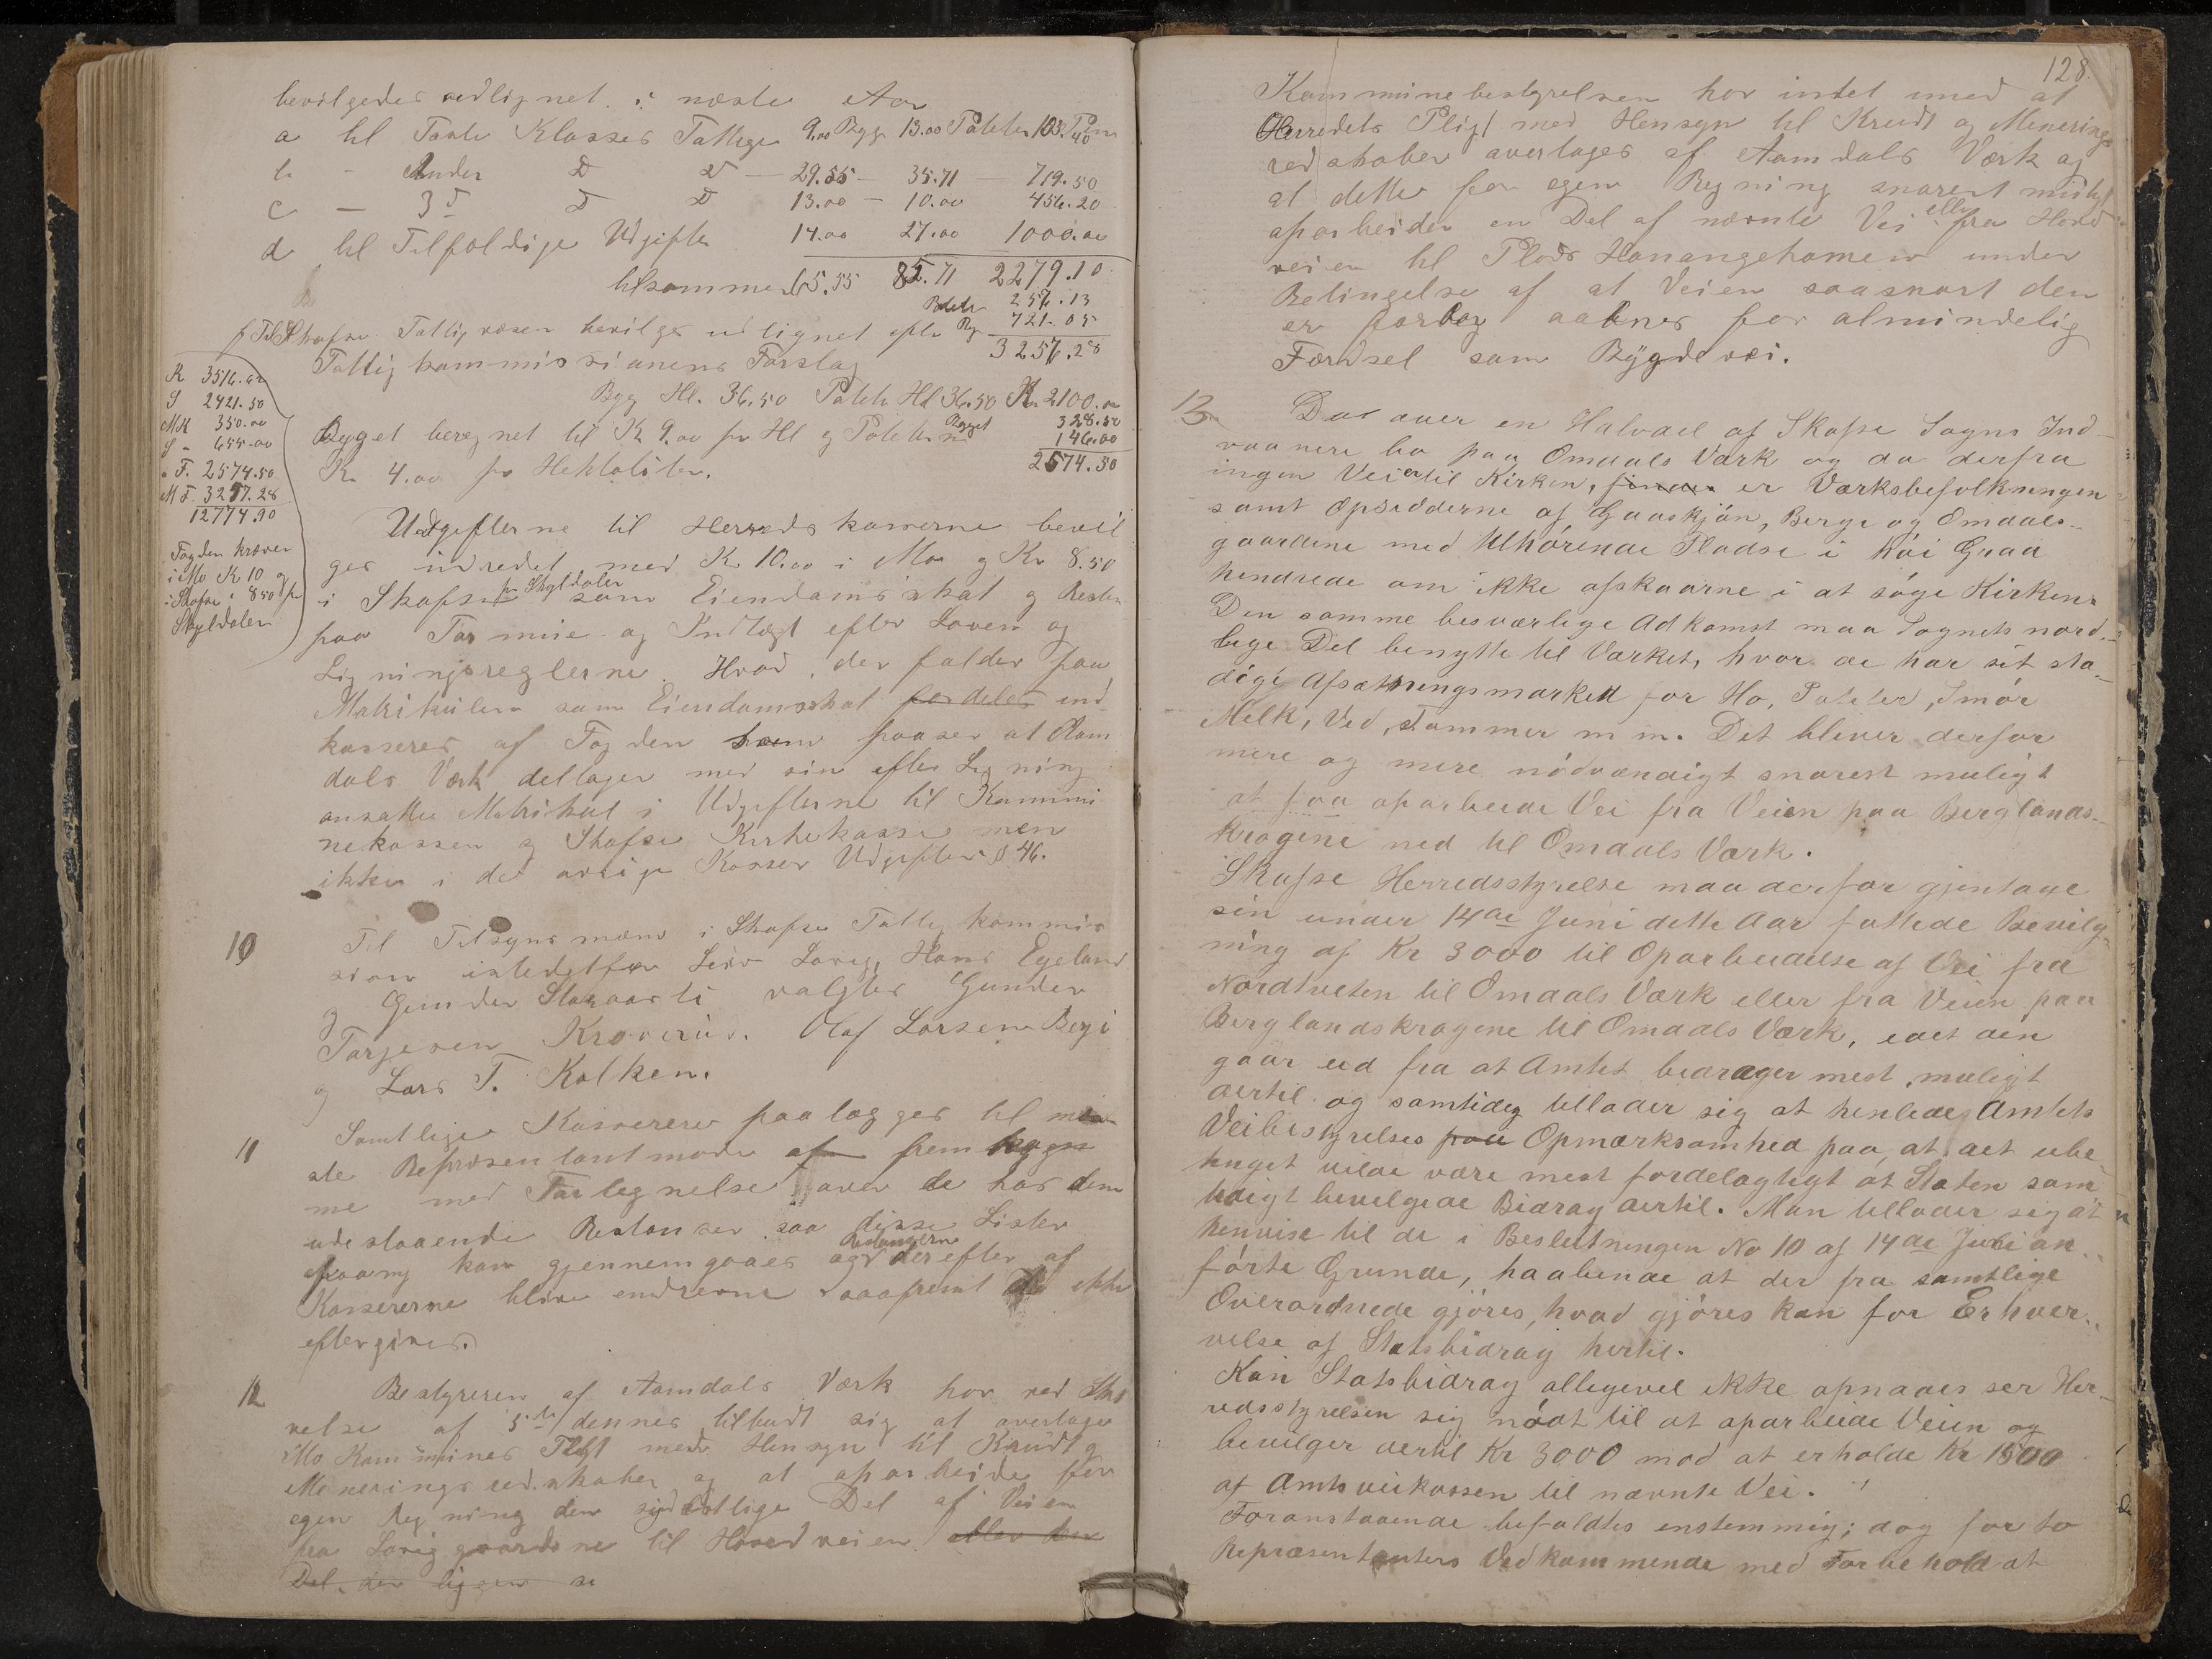 bevilgedes udlignet i næste Aar
a til Taate Klasses Fattige 9.00 Byg 13.00 Poteter 103.40
b - Anden D D - 29.55 - 35.71 - 719.50
c - 3 D D 13.00 - 10.00 456.20
d til Tilfældige Udgifter 14.00 27.00 1000.00
tilsammen 65.55 85.71 2279.10
Potet 257.13
f Til Skafse Fattigvæsen bevilges udlignet efter Byg 721.05
3257.28
Fattigkommissionens Forslag
Byg Hl. 36.50 Potet Hl 36.50 Kr 2100.00
Bygget beregnet til K 9.00 pr Hl og Poteterne Bygget 328.50
146.00
K. 4.00 pr Hektoliter. 2574.50
K 3516.
S 2421.50
MK 350.00
S - 655.00
F. 2574.50
M F. 3257.28
12774.90
Fogden kræver
i Mo K 10 og
i Skafse 8.50 pr
Skyldaler
Udgifterne til Herredskasserne bevil
ges indredet med K. 10.00 i Mo og Kr 8.50
i Skafse pr Skyldaler som Eiendomsskat og Resten
paa Formue og Indtægt efter Loven og
Ligningsreglerne. Hvad der falder paa
Matrikulen som Eiendomsskat fordeles ind
kasseres af Fogden som paaser at Aam
dals Værk deltager med sin efter Ligning
ansatte Matrikul i Udgifterne til Kommu
nekassen og Skafse Kirkekasse men
ikke i de øvrige Kasser Udgifter § 46.
10 Til Tilsynsmænd i Skafse Fattigkommis
sion istedetfor Leiv Lavig, Hans Egeland
og Gunder Slaaarti valgtes Gunder
Torjesen Kroverud. Olaf Larsen Berge
og Lars T. Kolken.
11 Samtlige Kasserere paalægges til næ
ste Repræsentantmøde at fremkom
me med Fortegnelse over de hos dem
udestaaende Restanser saa disse Lister
paany kan gjennemgaaes og Restangserne derefter af
Kassererne blive inddrevne saafremt de ikke
eftergives.
12 Bestyreren af Aamdals Værk har ved Skri
velse af 5te dennes tilbudt sig at overtage
Mo Kommunes Pligt med Hensyn til Krudt og
Mineringsredskaber og at oparbeide for
egen Regning den sydøstlige Del af Veien
fra Laviggaardene til Hovedveien eller den
Del, der ligger se
128.
Kommunebestyrelsen har intet imod at
Herredets Pligt med Hensyn til Krudt og Minerings
redskaber overtages af Aamdals Værk og
at dette for egen Regning snarest muligt
oparbeider en Del af nævnte Vei eller fra Hoved
veien til Plads Hanangehomen under
Betingelse af at Veien saasnart den
er færdig aabnes for almindelig
Færdsel som Bygdevei.
13 Da over en Halvdel af Skafse Sogns Ind-
vaanere bo paa Omdals Værk og da derfra
ingen Vei er til Kirken, findes er Værksbefolkningen
samt Opsidderne af Gaaskjøn, Berge og Omdals-
gaardene med tilhørende Pladse i høi Grad
hindrede om ikke afskaarne i at søge Kirken.
Den samme besværlige Adkomst maa Sognets nord-
lige Del benytte til Værket, hvor de har sit sta-
dige Afsætningsmarked for Hø, Poteter, Smør
Melk, Ved, Tømmer m m. Det bliver derfor
mere og mere nødvendigt snarest muligt
at faa oparbeide Vei fra Veien paa Berglands-
kragene ned til Omdals Værk.
Skafse Herredsstyrelse maa derfor gjentage
sin under 14de Juni dette Aar fattede Bevilg-
ning af Kr 3000 til Oparbeidelse af Vei fra
Nordtveten til Omdals Værk eller fra Veien paa
Berglandskragene til Omdals Værk, idet den
gaar ud fra at Amtet bidrager mest muligt
dertil og samtidig tillader sig at henlede Amtets
Veibestyrelses paa Opmærksomhed paa, at det ube-
tinget vilde være mest fordelagtigt at Staten sam
tidigt bevilgede Bidrag dertil. Man tillader sig at
henvise til de i Beslutningen No 10 af 14de Juni an-
førte Grunde, haabende at der fra samtlige
Overordnede gjøres, hvad gjøres kan for Erhver-
velse af Statsbidrag hertil.
Kan Statsbidrag alligevel ikke opnaaes ser Her-
redsstyrelsen sig nødt til at oparbeide Veien og
bevilger dertil Kr 3000 mod at erholde Kr 1500
af Amtsveikassen til nævnte Vei.
Foranstaaende befaldtes enstemmig; dog for to
Repræsentanters Vedkommende med Forbehold at